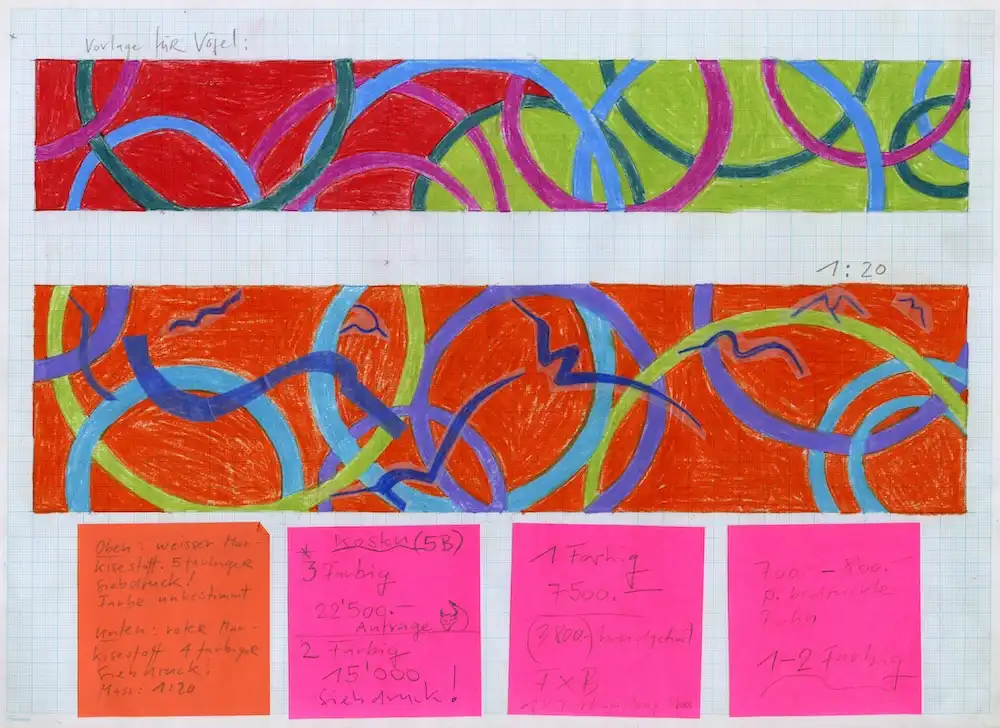 Vorlage für Vögel:
1:20
Oben: weisser Mar-
kisestoff. 5 farbiger
Siebdruck!
Farbe unbestimmt
Unten: roter Mar-
kisestoff 4 farbiger
Siebdruck!
Mass: 1:20
* Kosten (5B)
3 Farbig
22'500.-
Anfrage
2 Farbig
15'000
Siebdruck!
1 Farbig
7500.-
(3800.-)
7 x B
700.- – 800.-
p. bedruckte
Bahn
1-2 Farbig